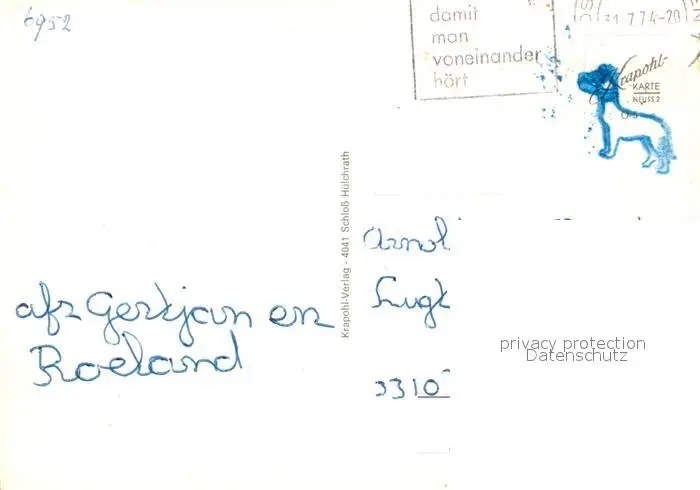 6952
damit
man
voneinander
hört
31.7.74-20
Krapohl-
KARTE
NEUSS 2
Krapohl-Verlag - 4041 Schloß Hülchrath
afz Gertjan en
Roeland
Arnol
Lugt
3310
privacy protection
Datenschutz